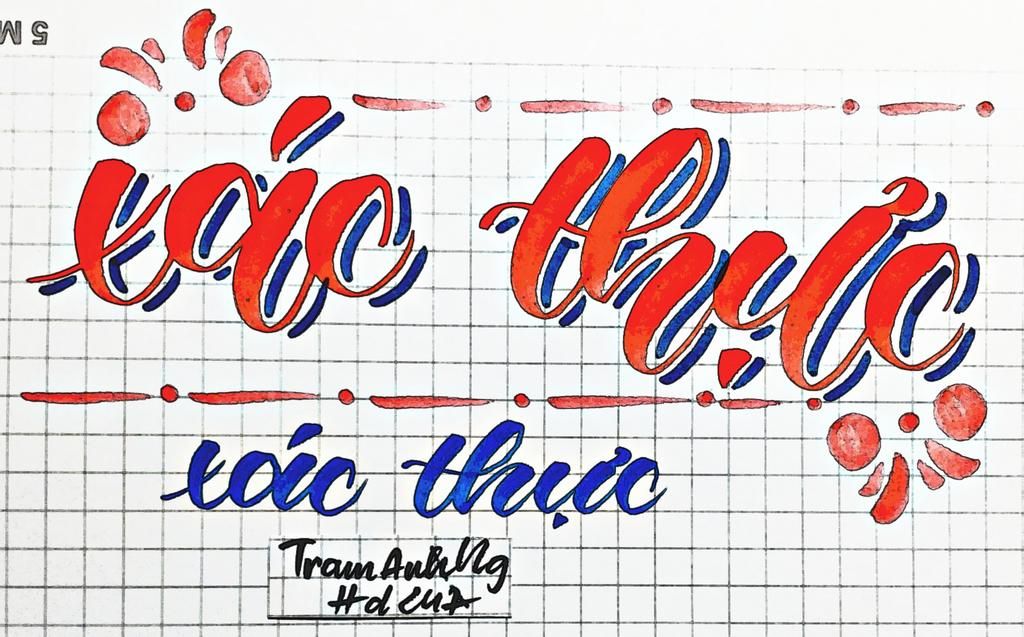 5 M
xác thực
xác thực
Tram Anh Ng